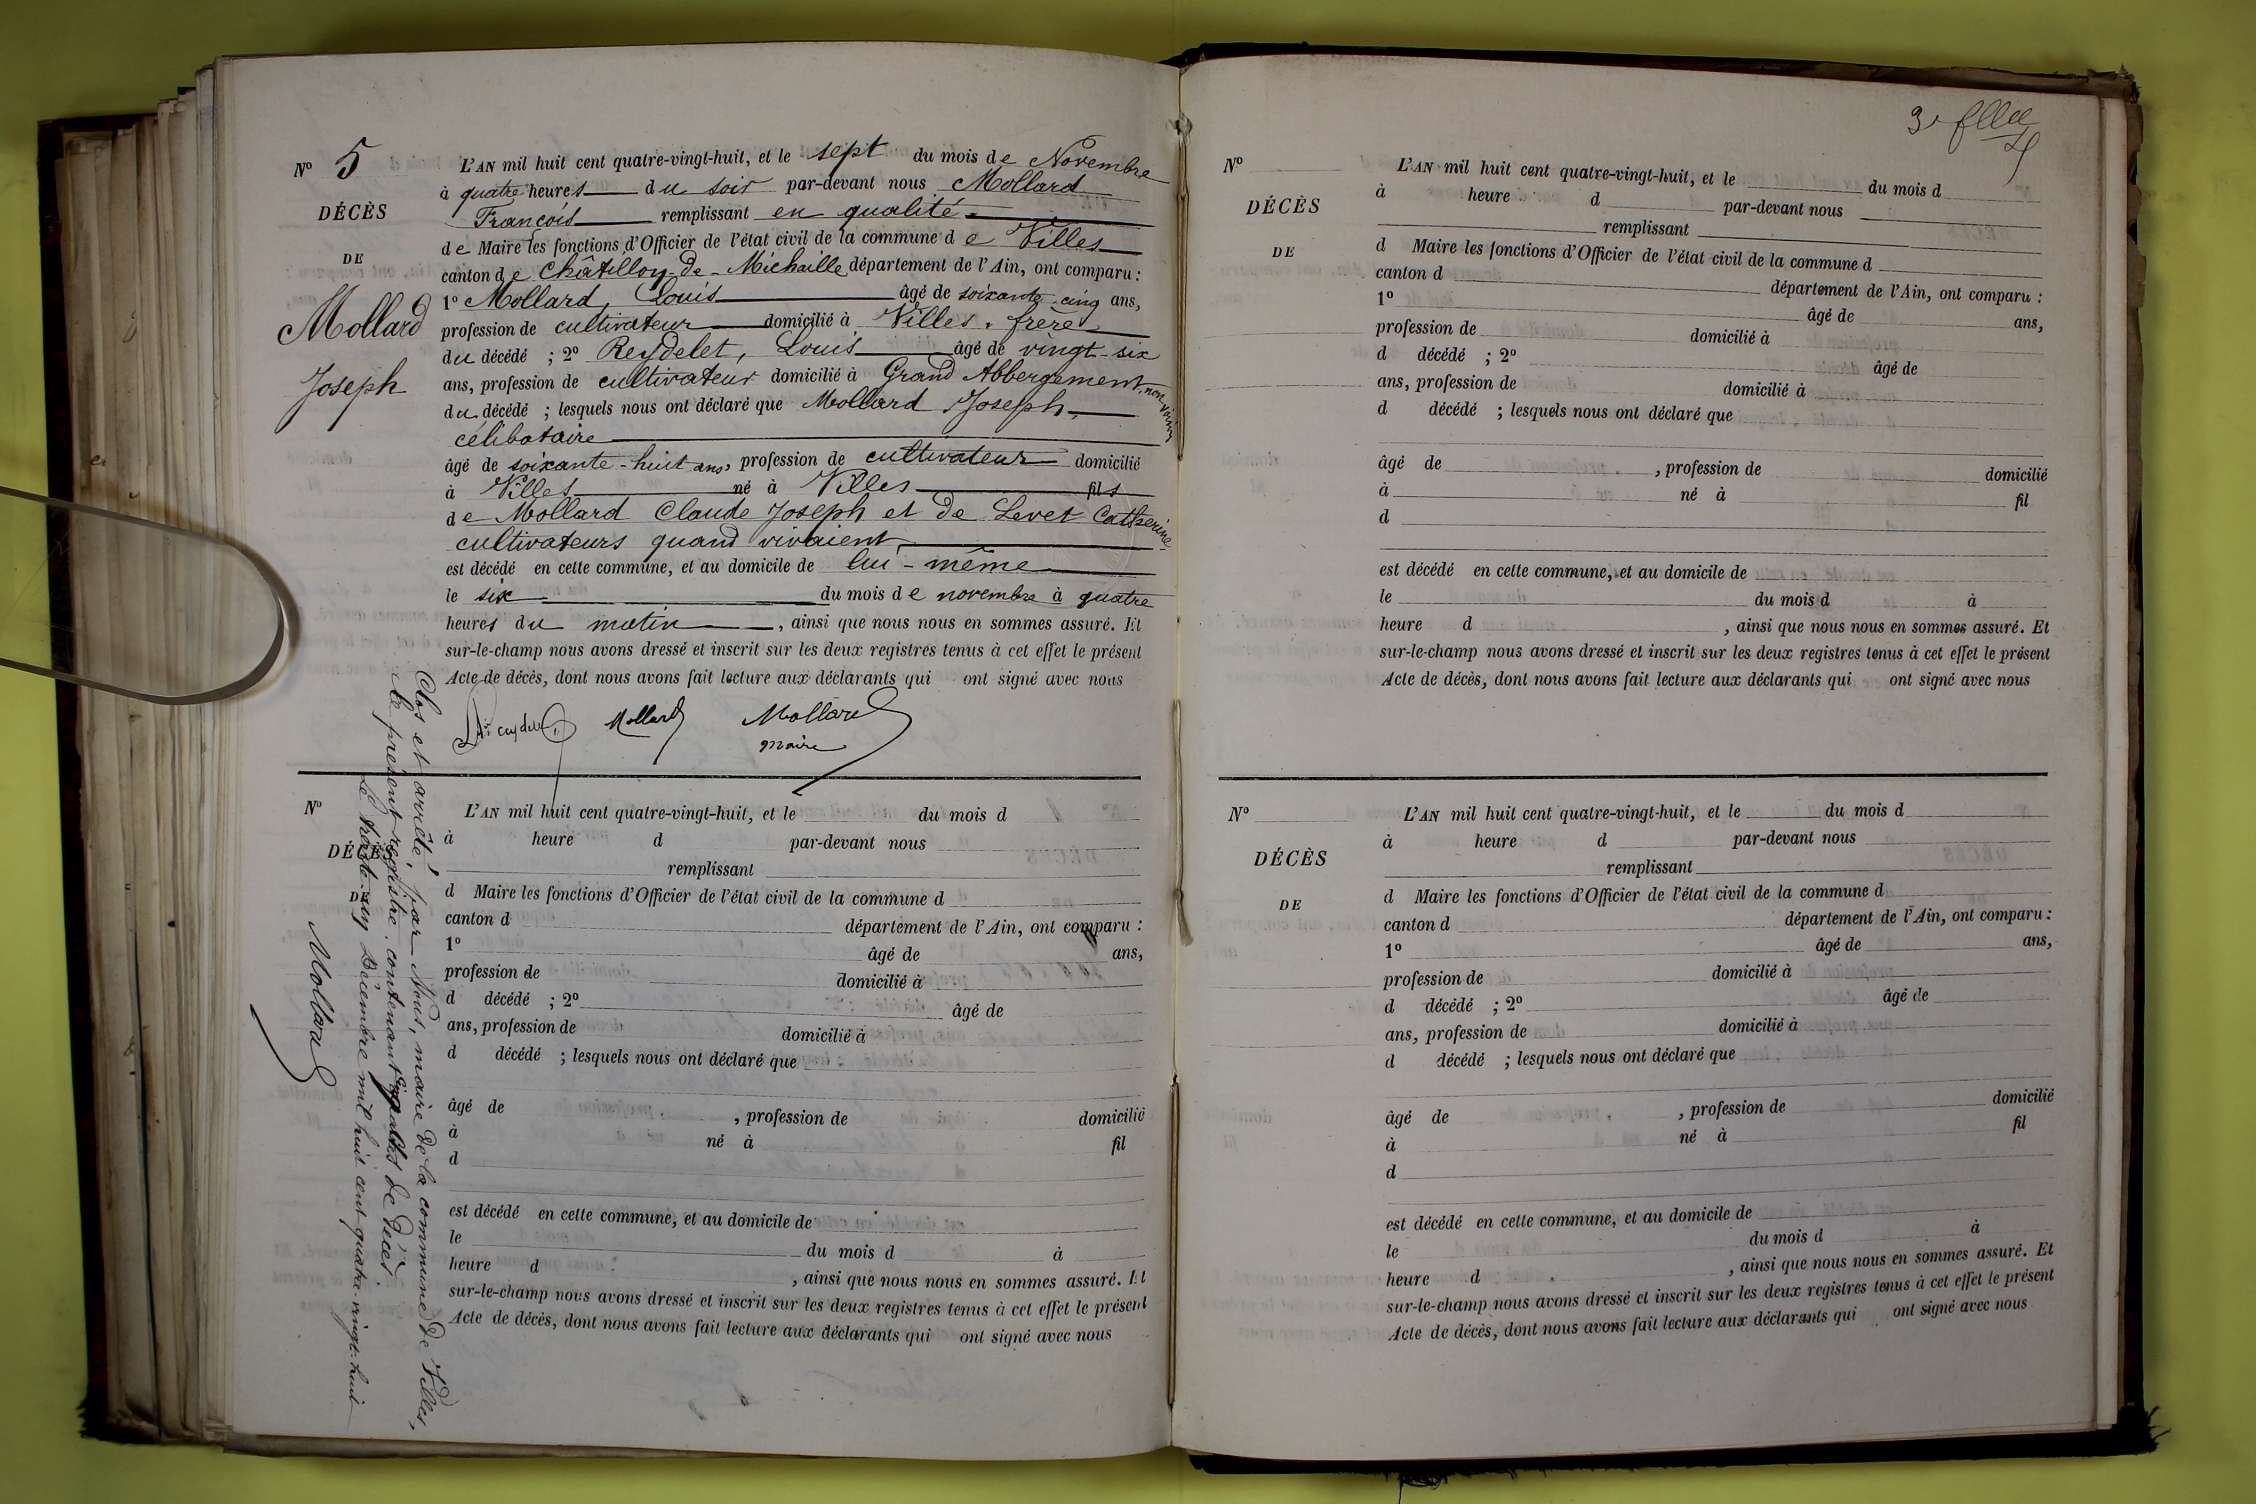 N° 5
DÉCÈS
DE
Mollard
Joseph
L'AN mil huit cent quatre-vingt-huit, et le sept du mois de Novembre
à quatre heures du soir par-devant nous Mollard
François remplissant en qualité
de Maire les fonctions d'Officier de l'état civil de la commune de Villes
canton de Châtillon-de-Michaille département de l'Ain, ont comparu :
1° Mollard, Louis âgé de soixante-cinq ans,
profession de cultivateur domicilié à Villes, frère
du décédé ; 2° Reydelet, Louis âgé de vingt-six
ans, profession de cultivateur domicilié à Grand Abbergement, non voisin
du décédé ; lesquels nous ont déclaré que Mollard Joseph,
célibataire
âgé de soixante-huit ans, profession de cultivateur domicilié
à Villes né à Villes fils
de Mollard Claude Joseph et de Levet Catherine
cultivateurs quand vivaient,
est décédé en cette commune, et au domicile de lui-même
le six du mois de novembre à quatre
heures du matin, ainsi que nous nous en sommes assuré. Et
sur-le-champ nous avons dressé et inscrit sur les deux registres tenus à cet effet le présent
Acte de décès, dont nous avons fait lecture aux déclarants qui ont signé avec nous
Mollard Mollard
maire
Clos et arrêté, par Nous, maire de la commune de Villes,
le présent registre contenant cinq actes de Décès.
Le trente-un Décembre mil huit cent quatre-vingt-huit
Mollard
N°
DÉCÈS
DE
L'AN mil huit cent quatre-vingt-huit, et le du mois d
à heure d par-devant nous
remplissant
d Maire les fonctions d'Officier de l'état civil de la commune d
canton d département de l'Ain, ont comparu :
1° âgé de ans,
profession de domicilié à
d décédé ; 2° âgé de
ans, profession de domicilié à
d décédé ; lesquels nous ont déclaré que
âgé de , profession de domicilié
à né à fil
d
est décédé en cette commune, et au domicile de
le du mois d à
heure d , ainsi que nous nous en sommes assuré. Et
sur-le-champ nous avons dressé et inscrit sur les deux registres tenus à cet effet le présent
Acte de décès, dont nous avons fait lecture aux déclarants qui ont signé avec nous
N°
DÉCÈS
DE
L'AN mil huit cent quatre-vingt-huit, et le du mois d
à heure d par-devant nous
remplissant
d Maire les fonctions d'Officier de l'état civil de la commune d
canton d département de l'Ain, ont comparu :
1° âgé de ans,
profession de domicilié à
d décédé ; 2° âgé de
ans, profession de domicilié à
d décédé ; lesquels nous ont déclaré que
âgé de , profession de domicilié
à né à fil
d
est décédé en cette commune, et au domicile de
le du mois d à
heure d , ainsi que nous nous en sommes assuré. Et
sur-le-champ nous avons dressé et inscrit sur les deux registres tenus à cet effet le présent
Acte de décès, dont nous avons fait lecture aux déclarants qui ont signé avec nous
N°
DÉCÈS
DE
L'AN mil huit cent quatre-vingt-huit, et le du mois d
à heure d par-devant nous
remplissant
d Maire les fonctions d'Officier de l'état civil de la commune d
canton d département de l'Ain, ont comparu :
1° âgé de ans,
profession de domicilié à
d décédé ; 2° âgé de
ans, profession de domicilié à
d décédé ; lesquels nous ont déclaré que
âgé de , profession de domicilié
à né à fil
d
est décédé en cette commune, et au domicile de
le du mois d à
heure d , ainsi que nous nous en sommes assuré. Et
sur-le-champ nous avons dressé et inscrit sur les deux registres tenus à cet effet le présent
Acte de décès, dont nous avons fait lecture aux déclarants qui ont signé avec nous